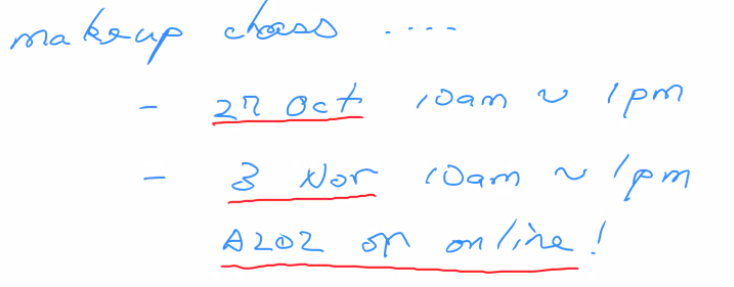 makeup class ....
- 27 Oct 10am ~ 1pm
- 3 Nov 10am ~ 1pm
A202 or online!